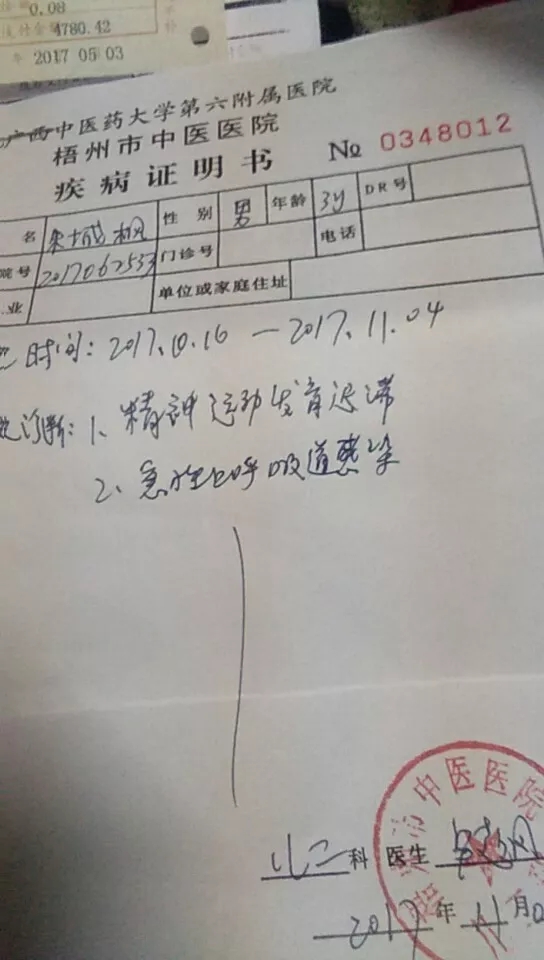 0.08
4780.42
2017 05 03
广西中医药大学第六附属医院
梧州市中医医院
疾病证明书
№ 0348012
名 性别 男 年龄 3y DR号
院号 2017062533 门诊号 电话
业 单位或家庭住址
时间：2017.10.16 — 2017.11.04
诊断：1、精神运动发育迟滞
2、急性上呼吸道感染
中医医院
儿二科 医生
2017年11月